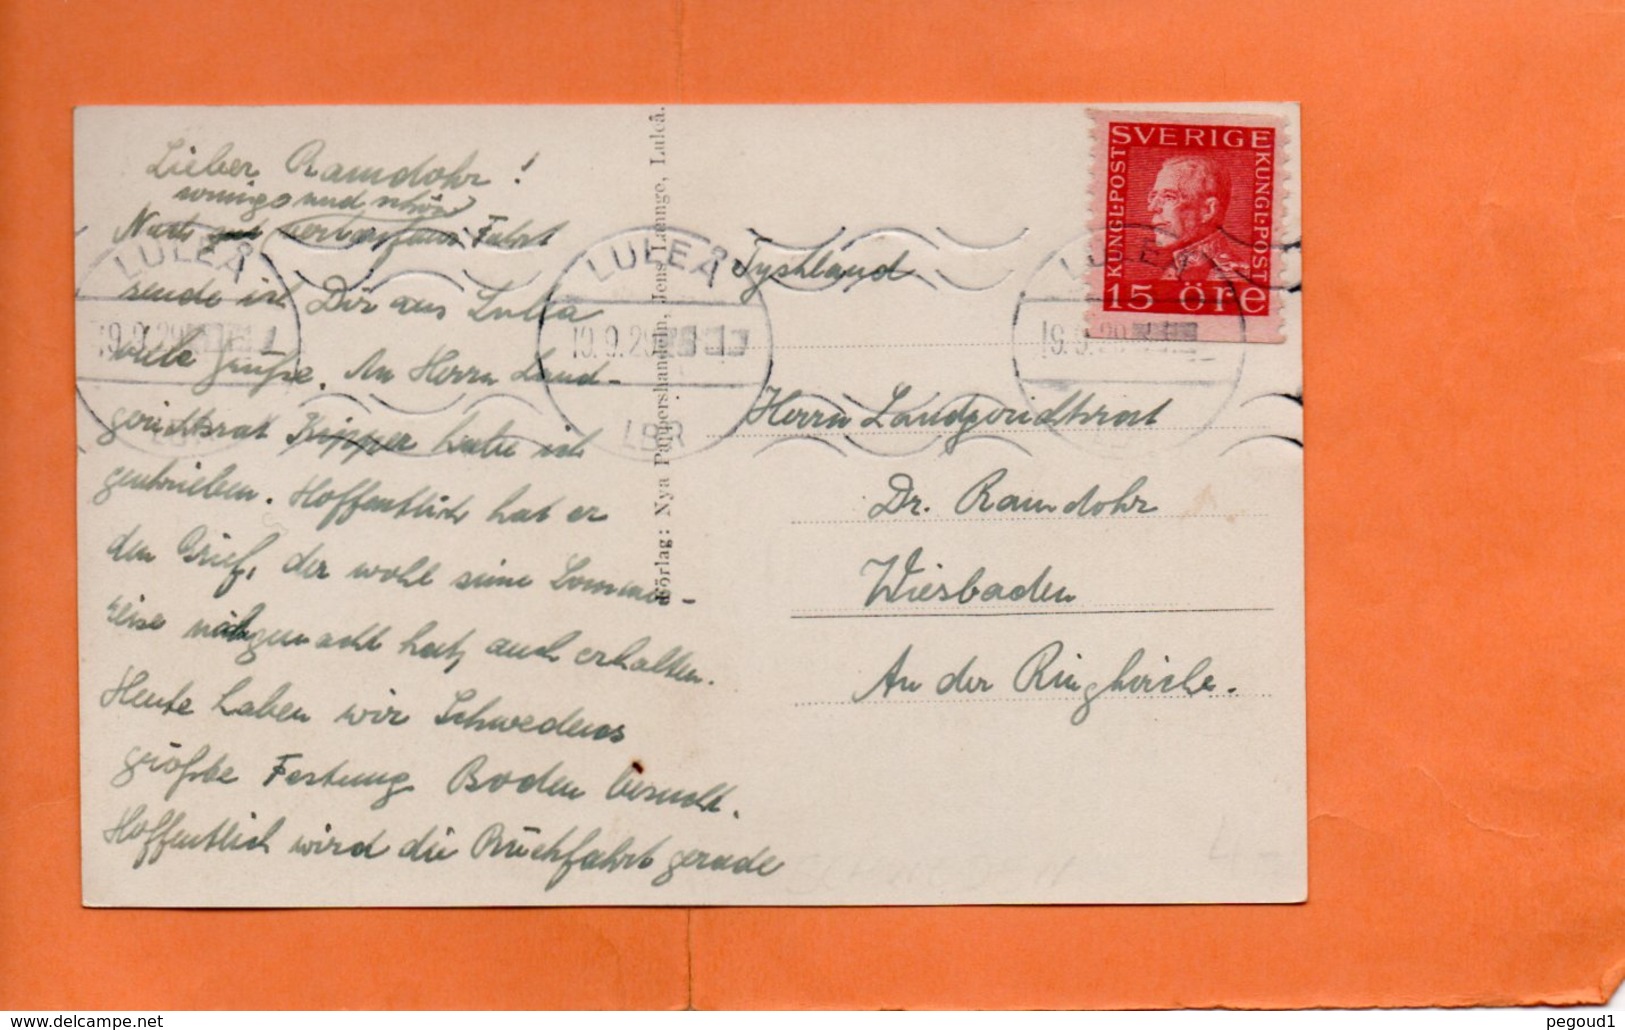 Lieber Ramdohr!
und schön
Nach gut Fahrt
sende ich Dir aus Lulea
viele Grüße. An Herrn Land-
gerichtsrat Kipper habe ich
geschrieben. Hoffentlich hat er
den Brief, der wohl seine Sommer-
reise mitgemacht hat, auch erhalten.
Heute haben wir Schwedens
größte Festung Boden besucht.
Hoffentlich wird die Rückfahrt gerade
Förlag: Nya Pappershandeln, Jens Længe, Luleå.
SVERIGE
KUNGL.POST
KUNGL.POST
15 öre
LULEÅ
19.9.29
LULEÅ
19.9.29
LBR
LULEÅ
19.9.29
Tyshland
Herrn Landgerichtsrat
Dr. Ramdohr
Wiesbaden
An der Ringkirche.
pegoud1
http://www.delcampe.net